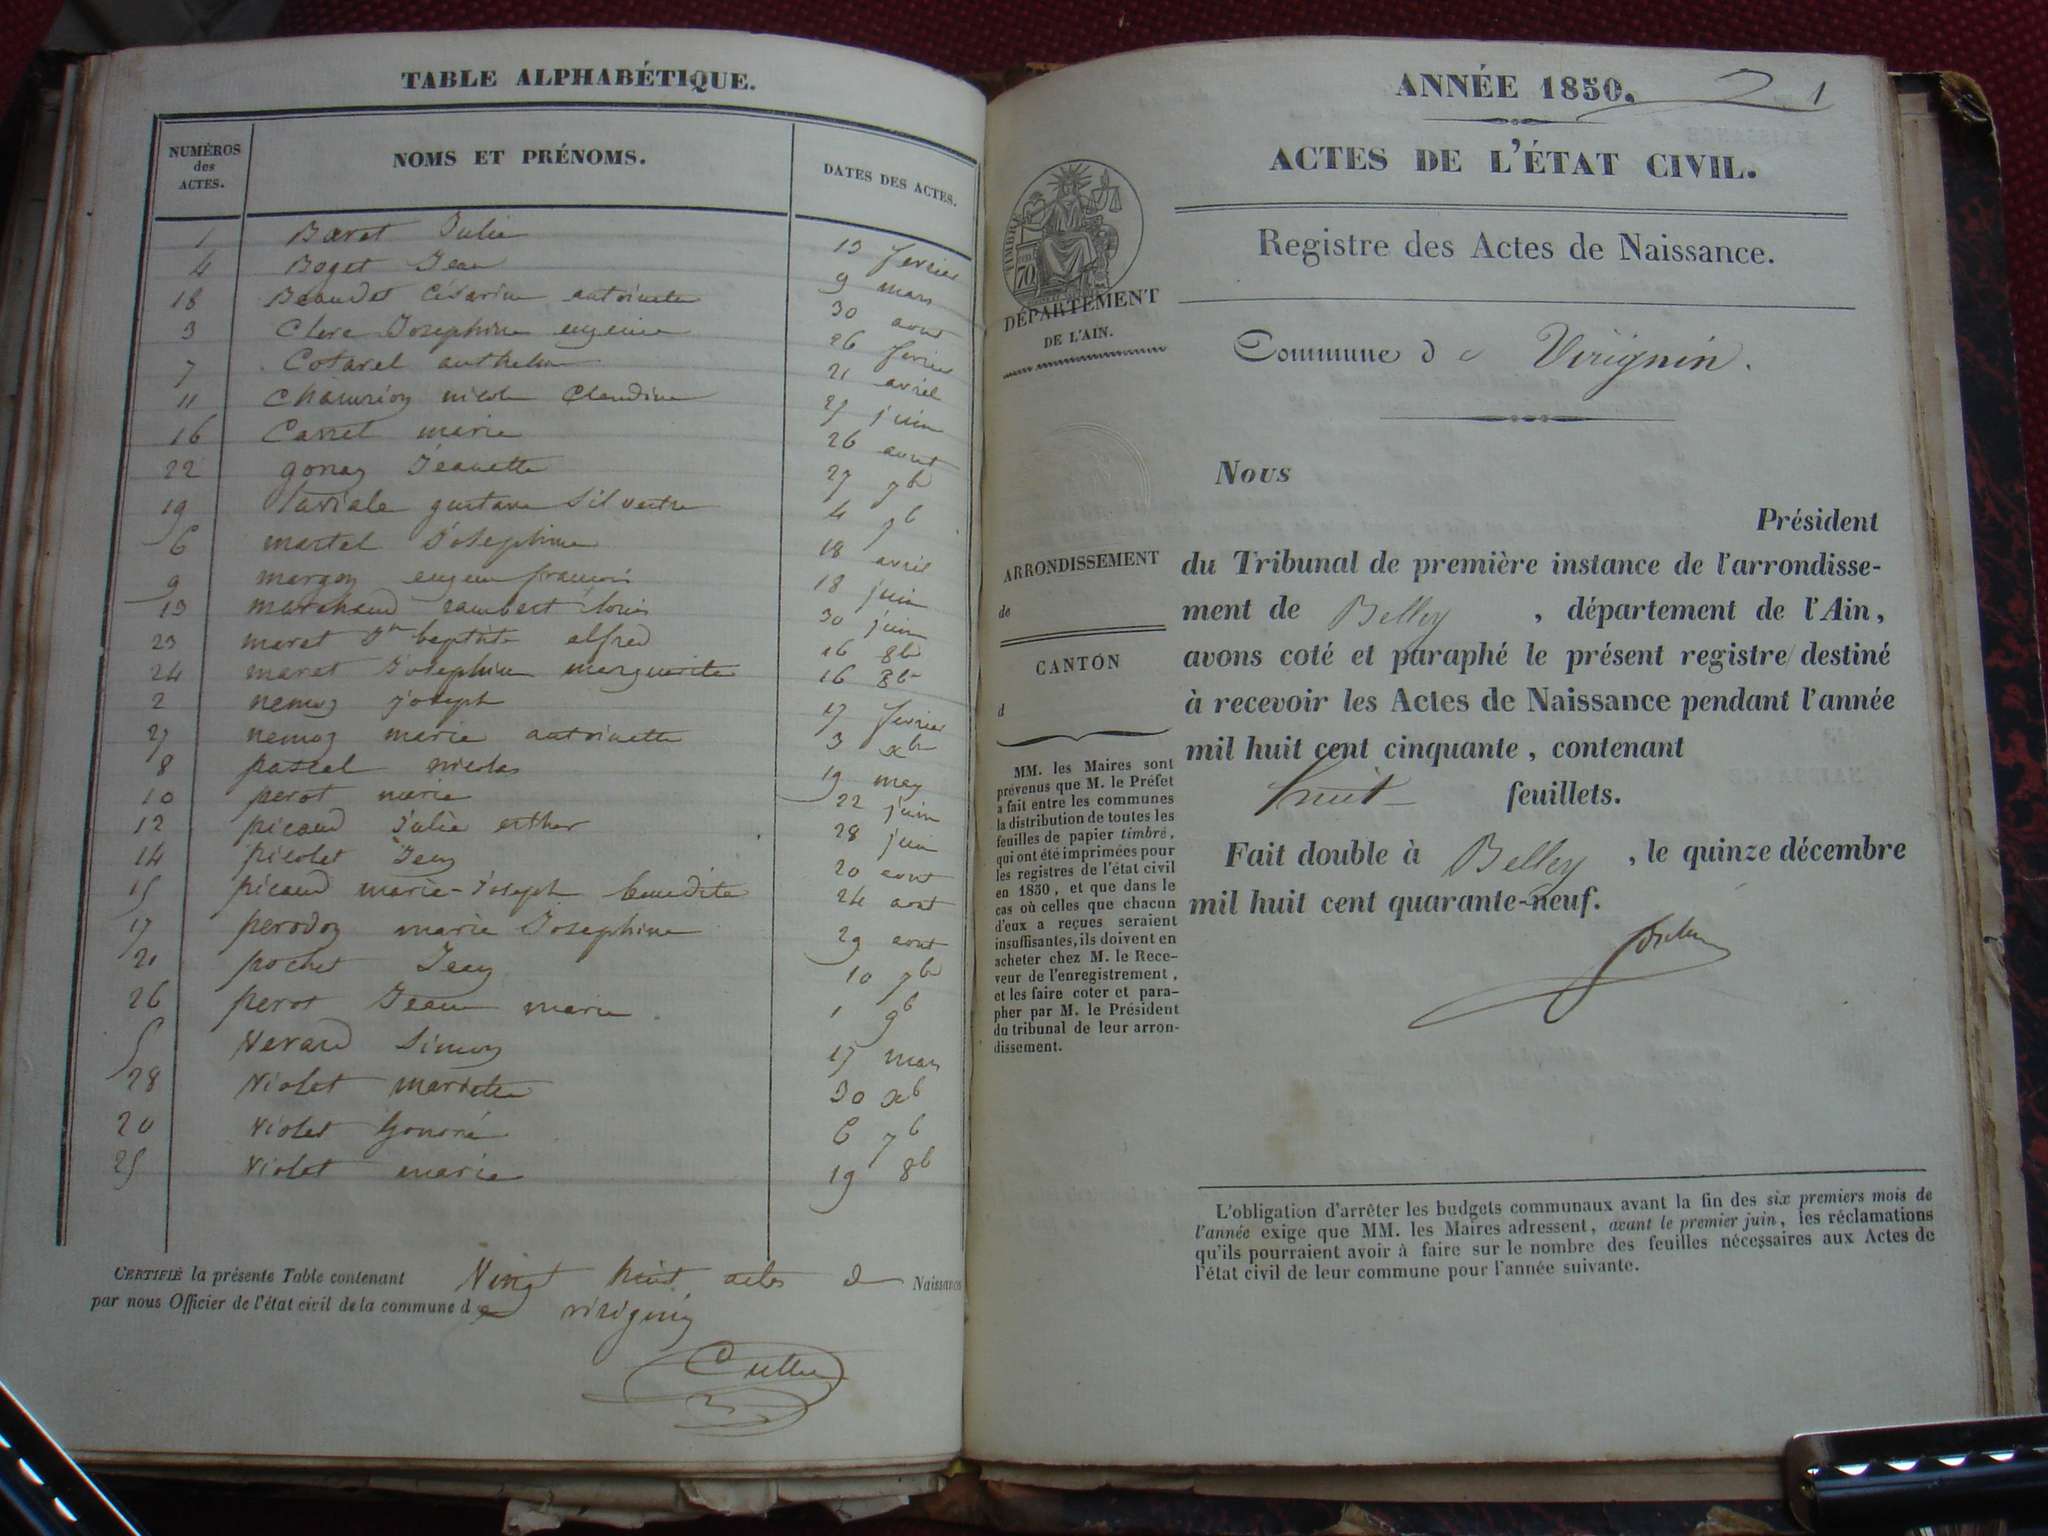 TABLE ALPHABÉTIQUE.
NUMÉROS des ACTES. NOMS ET PRÉNOMS. DATES DES ACTES.
1 Baret Julie 13 fevrier
4 Boget Jean 9 mars
18 Beaudet Césarine antoinette 30 aout
3 Clerc Josephine eugenie 26 fevrier
7 Cotarel anthelme 21 avril
11 Chamrion nicole Claudine 25 juin
16 Carrel marie 26 aout
22 gonaz Jeanette 27 7b
19 gustave Silvestre 4 7b
6 martel Josephine 18 avril
9 eugene francois 18 juin
13 marchand rambert louis 30 juin
23 maret Jn baptiste alfred 16 8b
24 maret Josephine marguerite 16 8b
2 nemoz joseph 17 fevrier
27 nemoz marie antoinette 3 xb
8 pascal nicolas 19 mey
10 perot marie 22 juin
12 picaud Julie esther 28 juin
14 picolet Jean 20 aout
15 picaud marie-Joseph benedite 24 aout
17 perodoz marie Josephine 29 aout
21 pochet Jean 10 7b
26 perot Jean marie 1 9b
5 Verand Simon 17 mars
28 Violet mariette 30 xb
20 Violet honoré 6 7b
25 Violet marie 19 8b
CERTIFIÉ la présente Table contenant Vingt huit actes de Naissance
par nous Officier de l'état civil de la commune de virignin
ANNÉE 1850. 1
ACTES DE L'ÉTAT CIVIL.
Registre des Actes de Naissance.
TIMBRE
70
DÉPARTEMENT
DE L'AIN.
Commune de Virignin.
Nous
Président
du Tribunal de première instance de l'arrondisse-
ment de Belley, département de l'Ain,
avons coté et paraphé le présent registre destiné
à recevoir les Actes de Naissance pendant l'année
mil huit cent cinquante, contenant
huit feuillets.
Fait double à Belley, le quinze décembre
mil huit cent quarante-neuf.
ARRONDISSEMENT
de
CANTON
d
MM. les Maires sont
prévenus que M. le Préfet
a fait entre les communes
la distribution de toutes les
feuilles de papier timbré,
qui ont été imprimées pour
les registres de l'état civil
en 1850, et que dans le
cas où celles que chacun
d'eux a reçues seraient
insuffisantes, ils doivent en
acheter chez M. le Rece-
veur de l'enregistrement,
et les faire coter et para-
pher par M. le Président
du tribunal de leur arron-
dissement.
L'obligation d'arrêter les budgets communaux avant la fin des six premiers mois de
l'année exige que MM. les Maires adressent, avant le premier juin, les réclamations
qu'ils pourraient avoir à faire sur le nombre des feuilles nécessaires aux Actes de
l'état civil de leur commune pour l'année suivante.